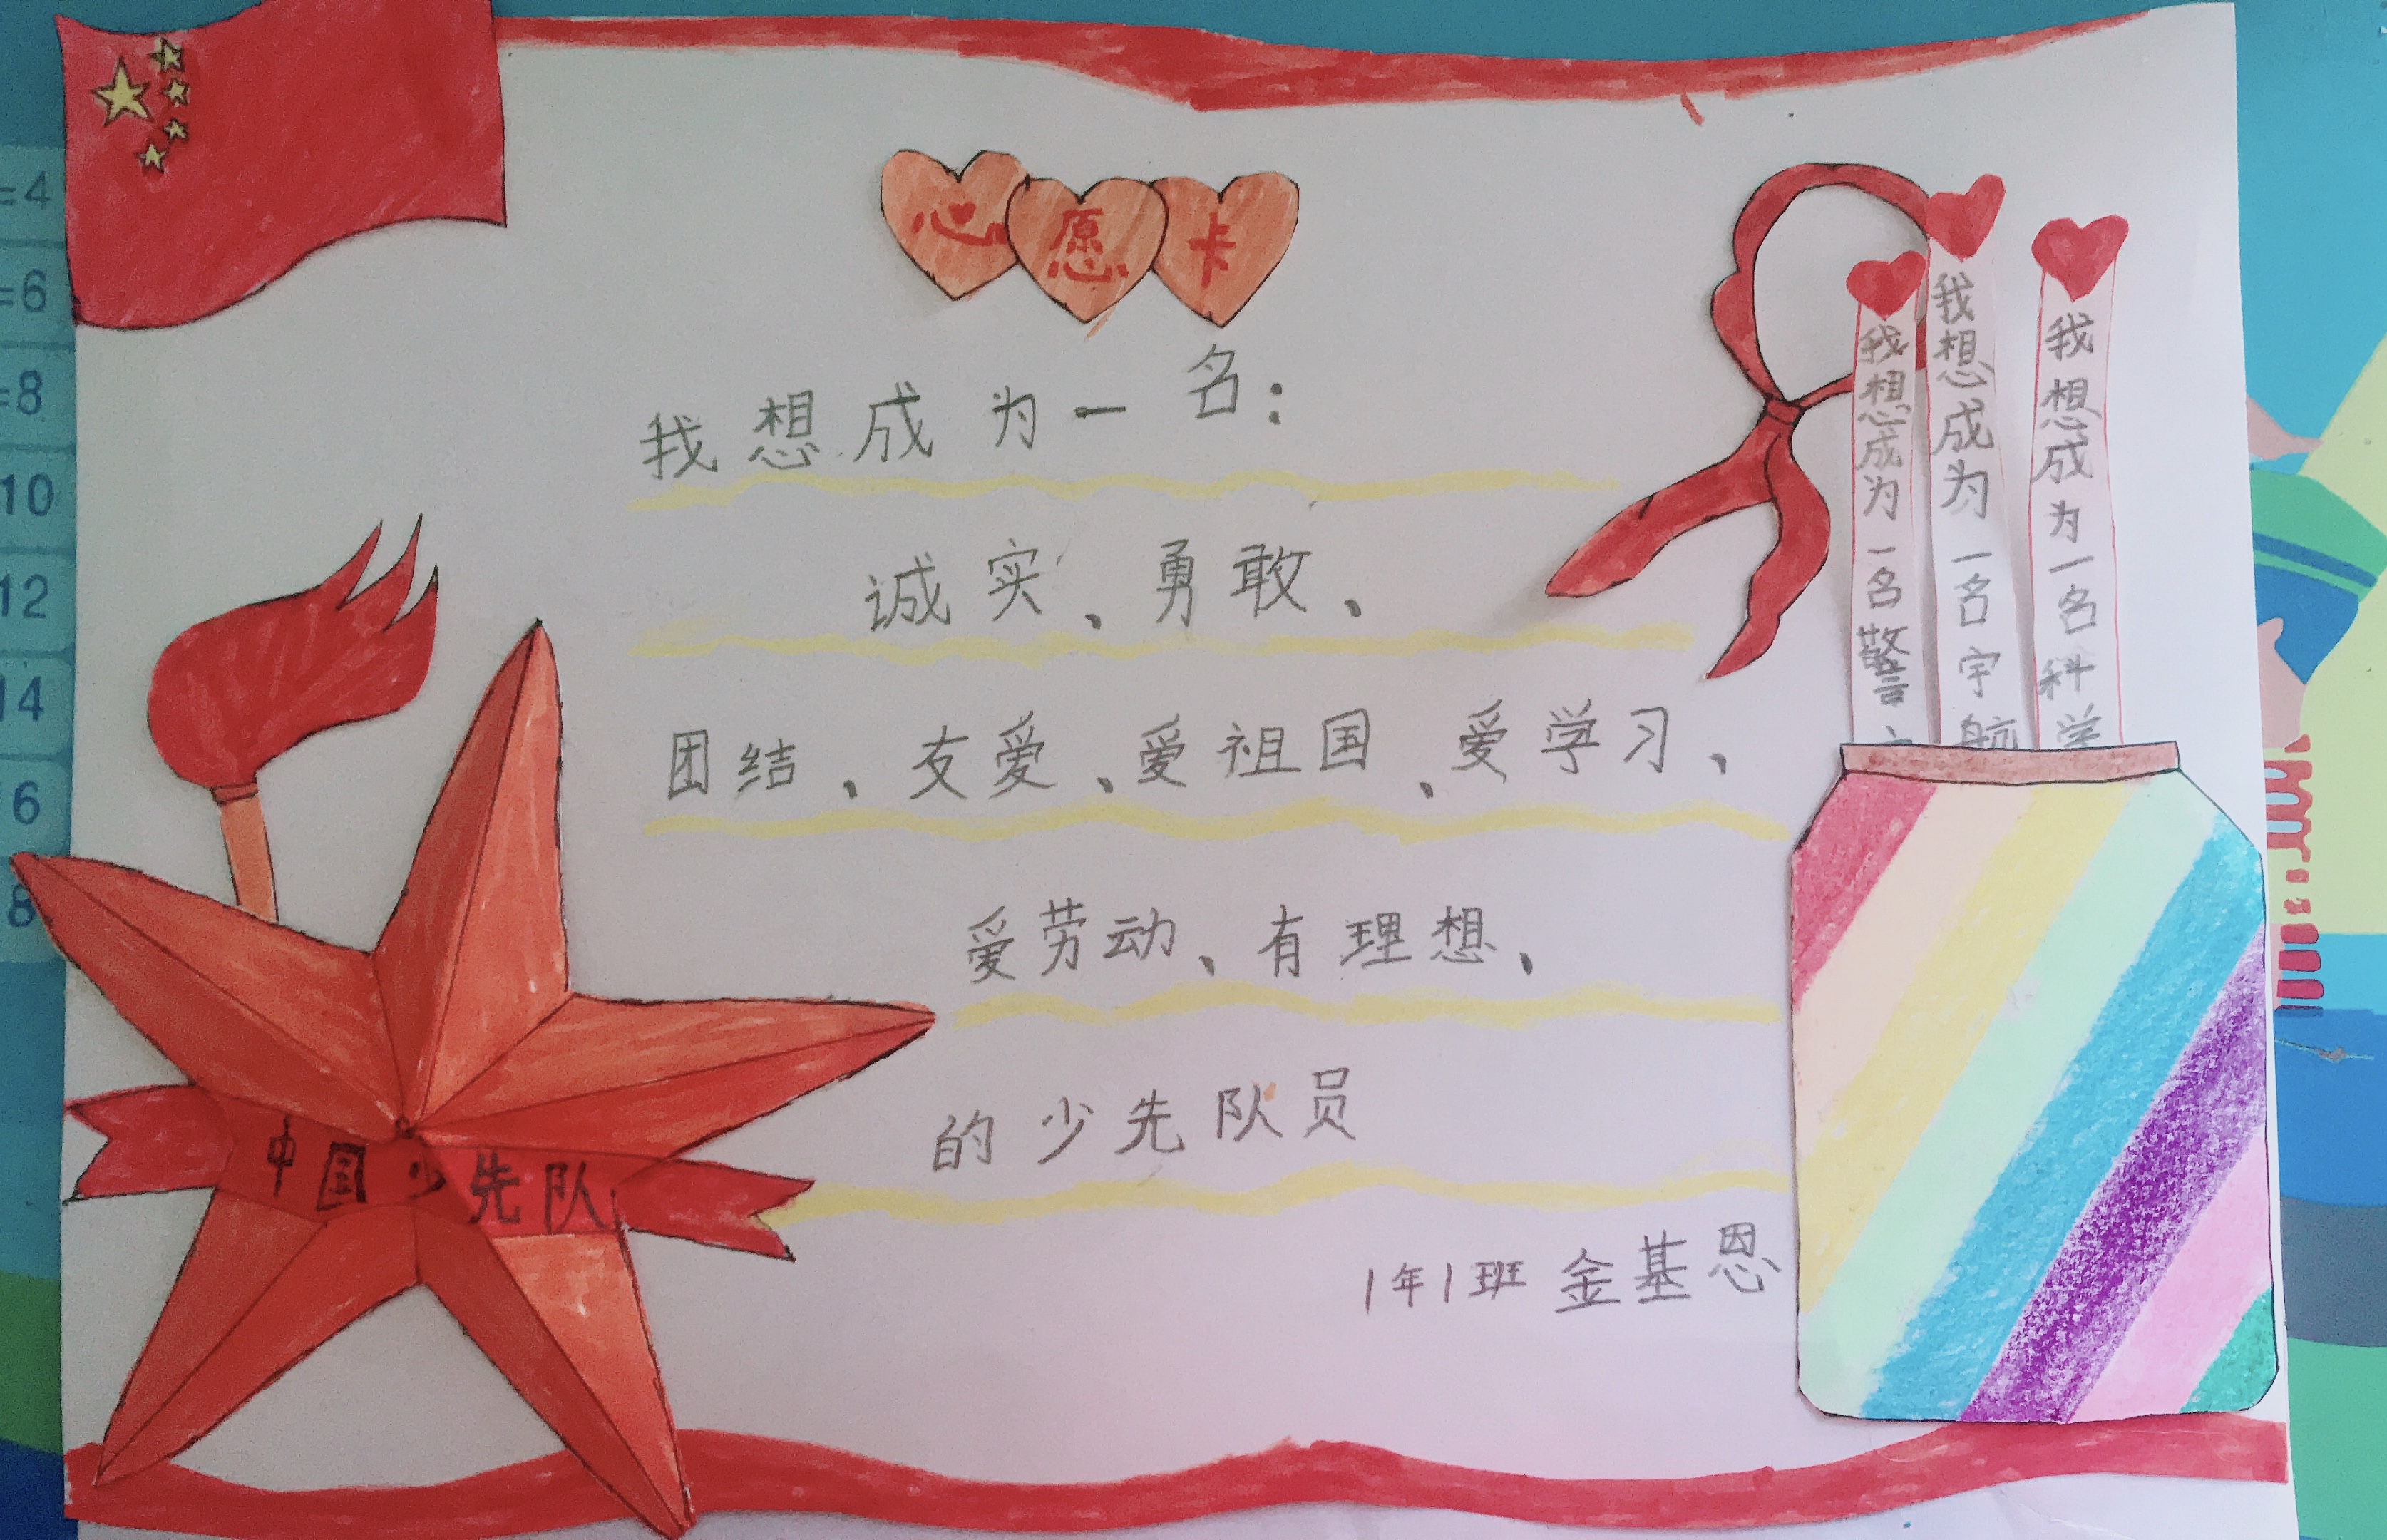 心愿卡
我想成为一名：
诚实、勇敢、
团结、友爱、爱祖国、爱学习、
爱劳动、有理想、
的少先队员
1年1班 金基恩
中国少先队
我想成为一名警
我想成为一名宇航
我想成为一名科学
=4
=6
=8
10
12
14
6
8